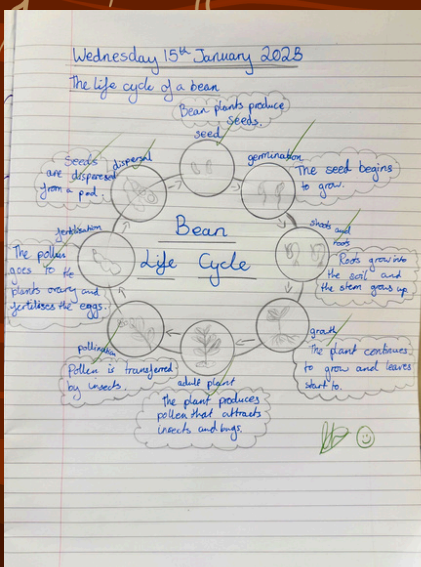 Wednesday 15th January 2025
The life cycle of a bean
Bean plants produce
seeds.
seed
germination
The seed begins
to grow.
shoots and
roots
Roots grow into
the soil and
the stem grows up
growth
The plant continues
to grow and leaves
start to.
adult plant
The plant produces
pollen that attracts
insects and bugs.
pollination
Pollen is transferred
by insects.
fertilisation
The pollen
goes to the
plants ovary and
fertilises the eggs.
dispersal
Seeds
are dispersed
from a pod.
Bean
Life Cycle